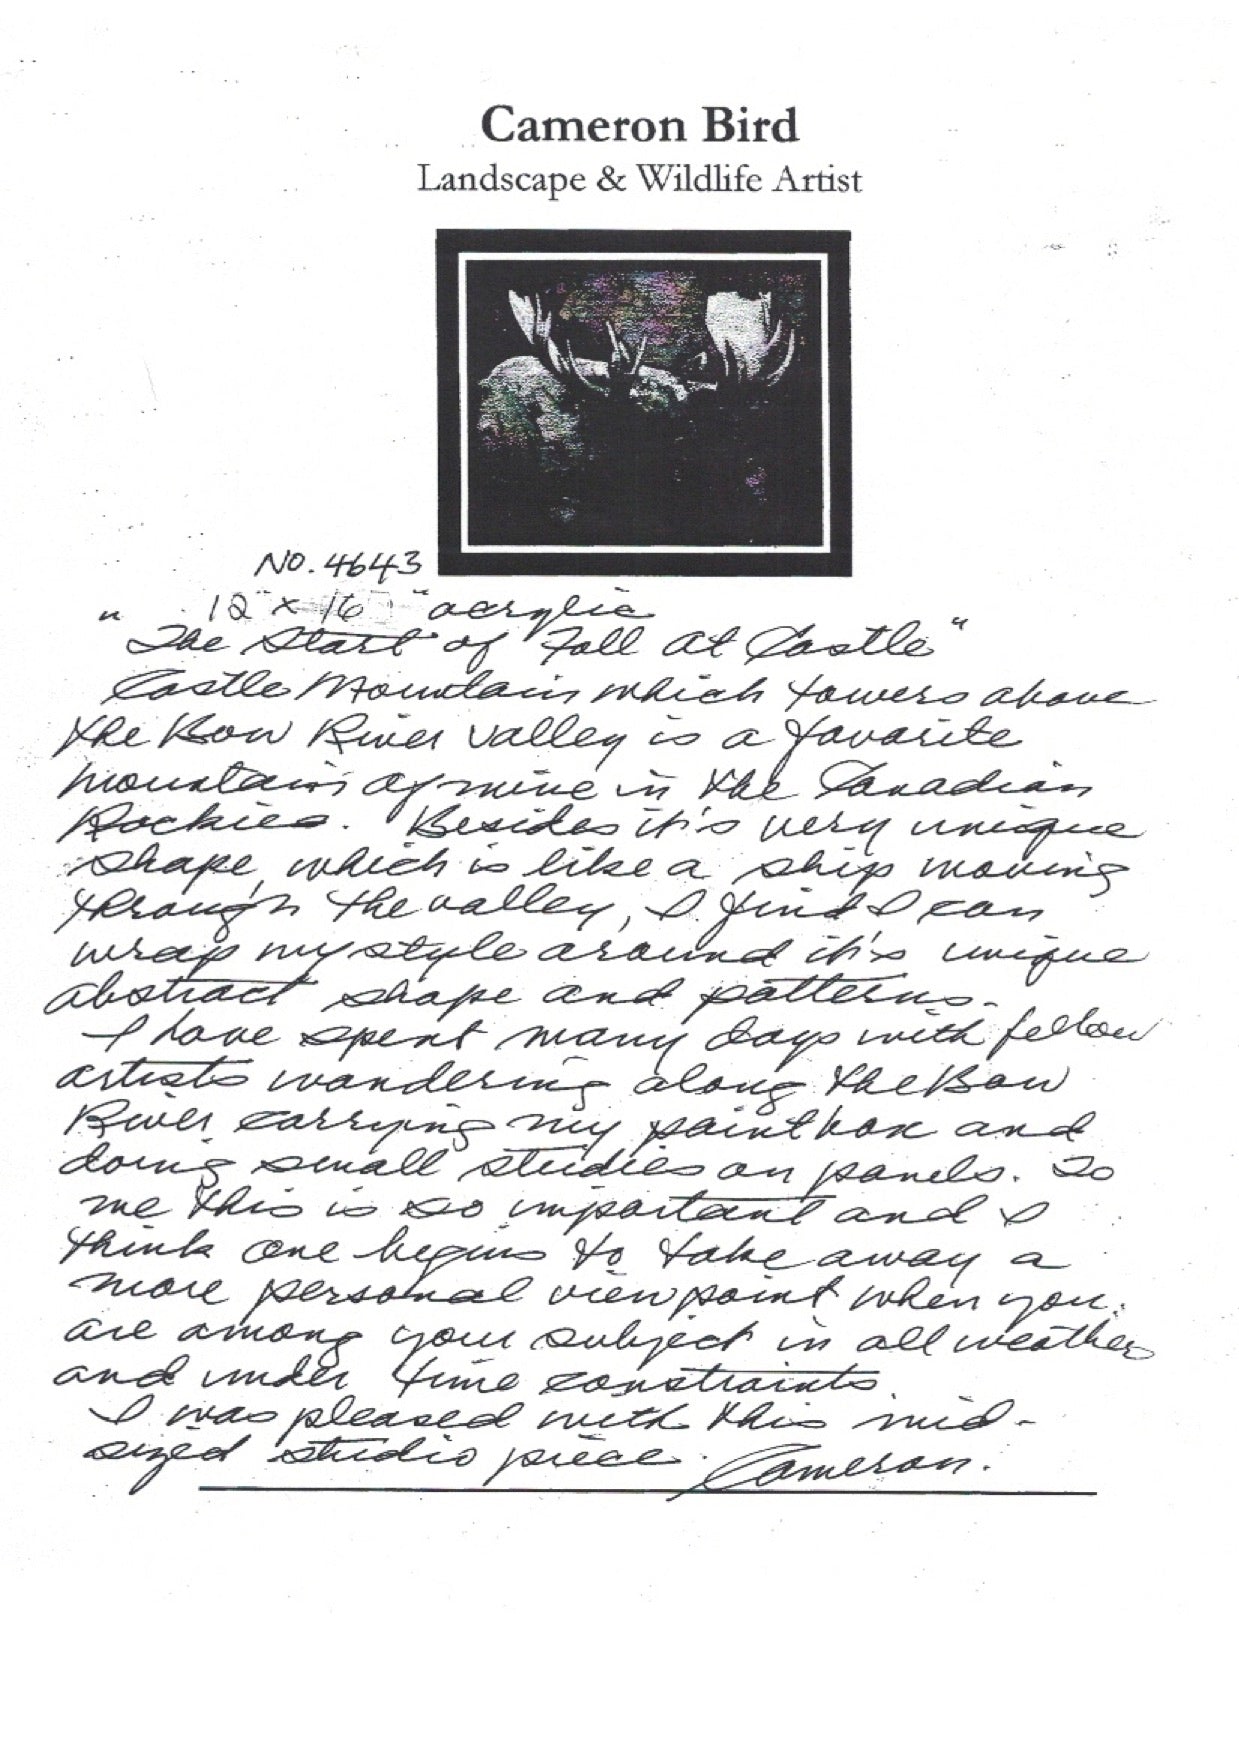 Cameron Bird
Landscape & Wildlife Artist
NO. 4643
12" x 16" acrylic
"The Start of Fall at Castle"
Castle Mountain which towers above
the Bow River valley is a favorite
mountain of mine in the Canadian
Rockies. Besides it's very unique
shape, which is like a ship moving
through the valley, I find I can
wrap my style around it's unique
abstract shape and patterns.
I have spent many days with fellow
artists wandering along the Bow
River carrying my paintbox and
doing small studies on panels. To
me this is so important and I
think one begins to take away a
more personal viewpoint when you
are among your subject in all weathers
and under time constraints.
I was pleased with this mid-
sized studio piece. Cameron.